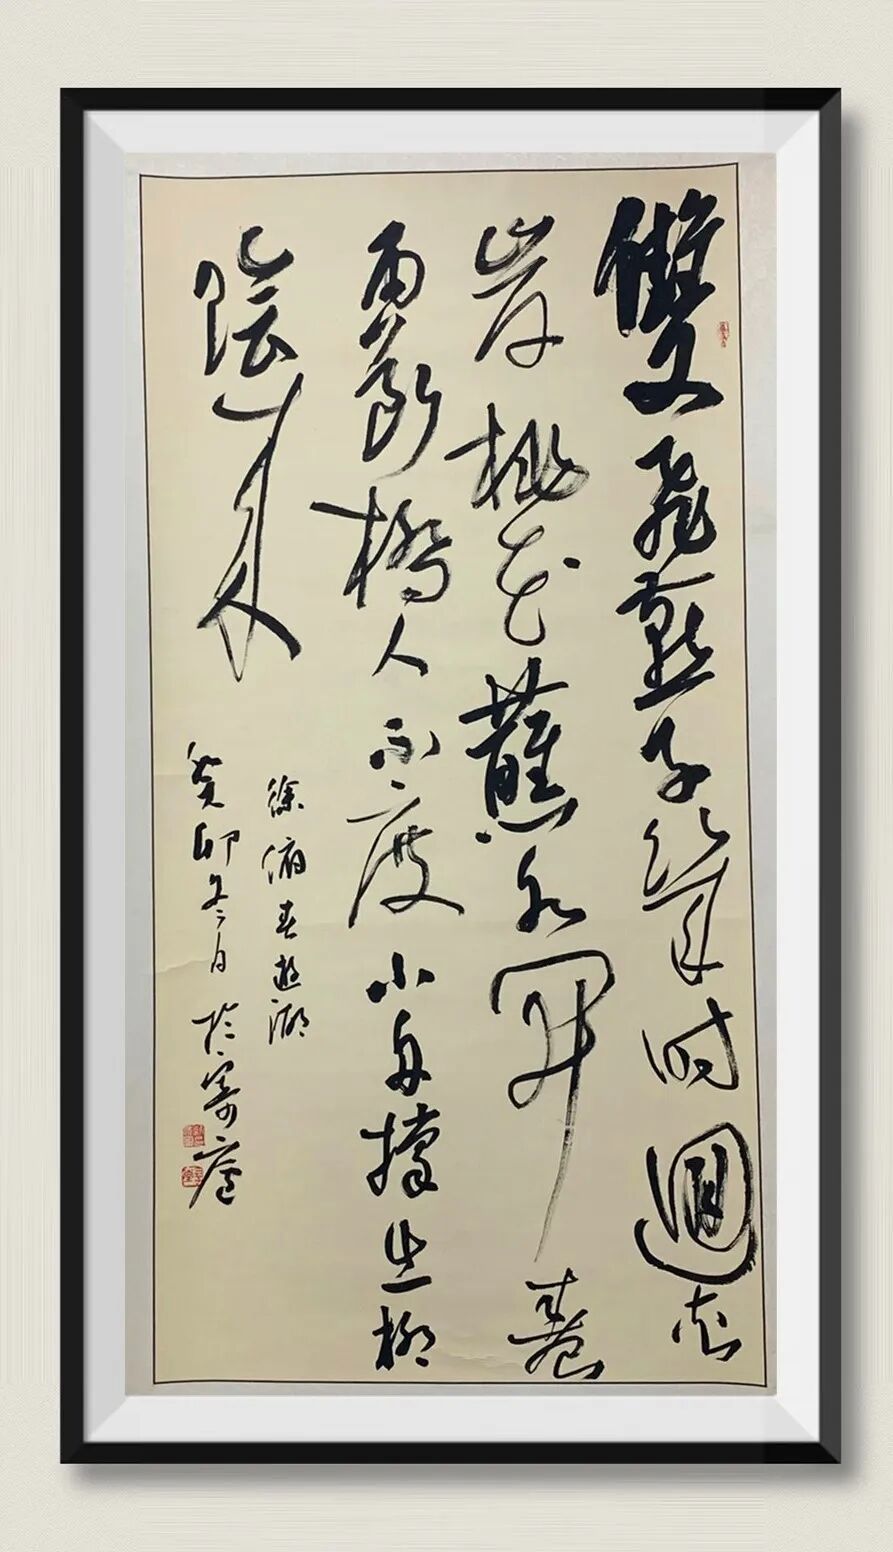 雙飛燕子幾時迴夾
岸桃花蘸水開春
雨斷橋人不度小舟撐出柳
陰來
徐俯春遊湖
癸卯冬日於寄廬